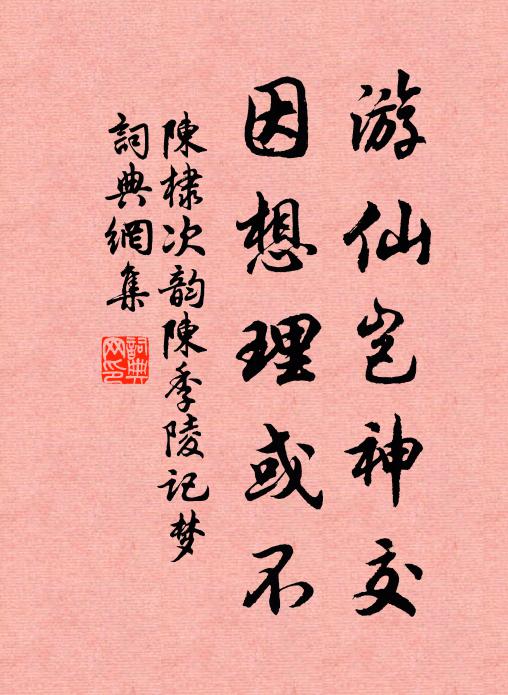 游仙岂神交
因想理或不
陳棣次韵陳季陵记梦
詞典網集
詞典网印